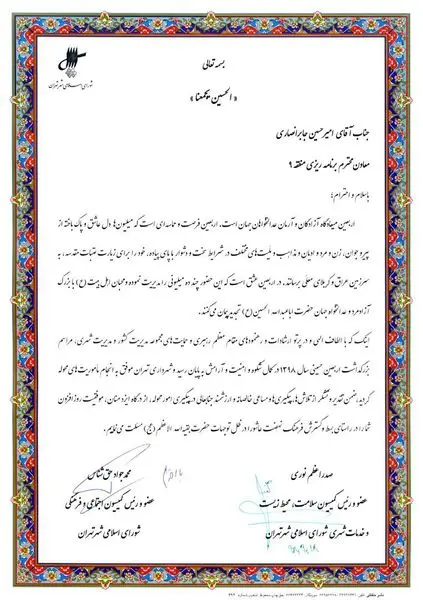 شورای اسلامی شهر تهران
بسمه تعالی
« الحسین یجمعنا »
جناب آقای امیرحسین جابرانصاری
معاون محترم برنامه ریزی منطقه ۹
با سلام و احترام؛
اربعین میعادگاه آزادگان و آرمان عدالتخواهان جهان است. اربعین فرصت و حماسه ای است که میلیون‌ها دل عاشق و پاک باخته از
پیر و جوان، زن و مرد و ادیان و مذاهب و ملیت‌های مختلف در شرایط سخت و دشوار با پای پیاده، خود را برای زیارت عتبات مقدسه، به
سرزمین عراق و کربلای معلی برسانند. در اربعین عشق است که این حضور چند ده میلیونی را مدیریت نموده و محبان اهل بیت (ع) با بزرگ
آزادمرد و عدالتخواه جهان حضرت اباعبدالله الحسین (ع) تجدید پیمان می‌کنند.
اینک که با الطاف الهی و در پرتو ارشادات و رهنمودهای مقام معظم رهبری و حمایت‌های مجموعه مدیریت کشور و مدیریت شهری، مراسم
بزرگداشت اربعین حسینی سال ۱۳۹۸ در کمال شکوه و امنیت و آرامش به پایان رسید و شهرداری تهران موفق به انجام ماموریت‌های محوله
گردید، ضمن تقدیر و تشکر از تلاش‌ها، پیگیری‌ها و مساعی خالصانه و ارزشمند جنابعالی در پیگیری امور محوله، از درگاه ایزد منان، موفقیت روزافزون
شما را در راستای بسط و گسترش فرهنگ نهضت عاشورا در ظل توجهات حضرت بقیه الله الاعظم (عج) مسئلت می‌نمایم.
صدراعظم نوری
عضو و رئیس کمیسیون سلامت، محیط زیست
و خدمات شهری شورای اسلامی شهر تهران
محمدجواد حق شناس
عضو و رئیس کمیسیون اجتماعی و فرهنگی
شورای اسلامی شهر تهران